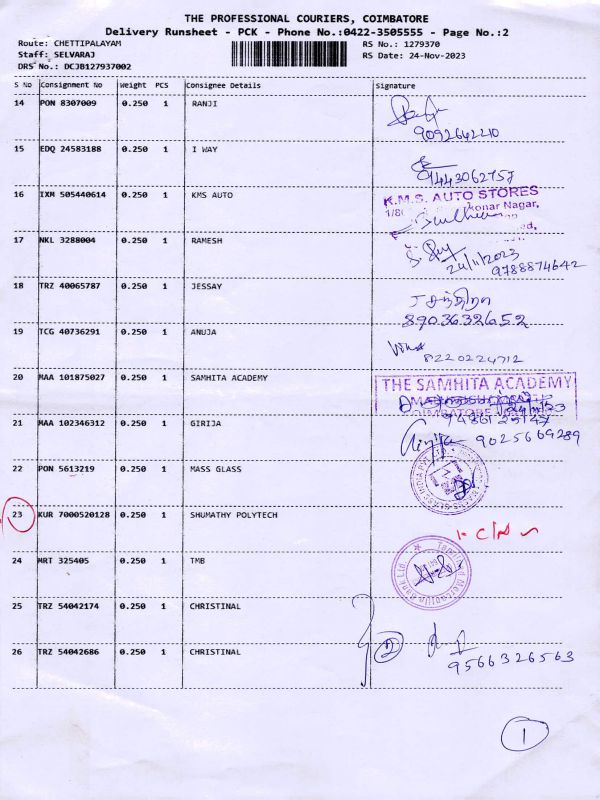 THE PROFESSIONAL COURIERS, COIMBATORE
Delivery Runsheet - PCK - Phone No.:0422-3505555 - Page No.:2
Route: CHETTIPALAYAM
RS No.: 1279370
Staff: SELVARAJ
RS Date: 24-Nov-2023
DRS No.: DCJB127937002
S No Consignment No Weight PCS Consignee Details Signature
14 PON 8307009 0.250 1 RANJI
9092642210
15 EDQ 24583188 0.250 1 I WAY
16 IXM 505440614 0.250 1 KMS AUTO
K.M.S. AUTO STORES
konar Nagar,
17 NKL 3288004 0.250 1 RAMESH
24/11/2023
9788874642
18 TRZ 40065787 0.250 1 JESSAY
8903632652
19 TCG 40736291 0.250 1 ANUJA
8220224712
20 MAA 101875027 0.250 1 SAMHITA ACADEMY
THE SAMHITA ACADEMY
21 MAA 102346312 0.250 1 GIRIJA
9486125147
Girija 9025669289
22 PON 5613219 0.250 1 MASS GLASS
23 KUR 7000520128 0.250 1 SHUMATHY POLYTECH
24 MRT 325405 0.250 1 TMB
Tamilnad Mercantile Bank Ltd.
25 TRZ 54042174 0.250 1 CHRISTINAL
26 TRZ 54042686 0.250 1 CHRISTINAL
2
9566326563
1